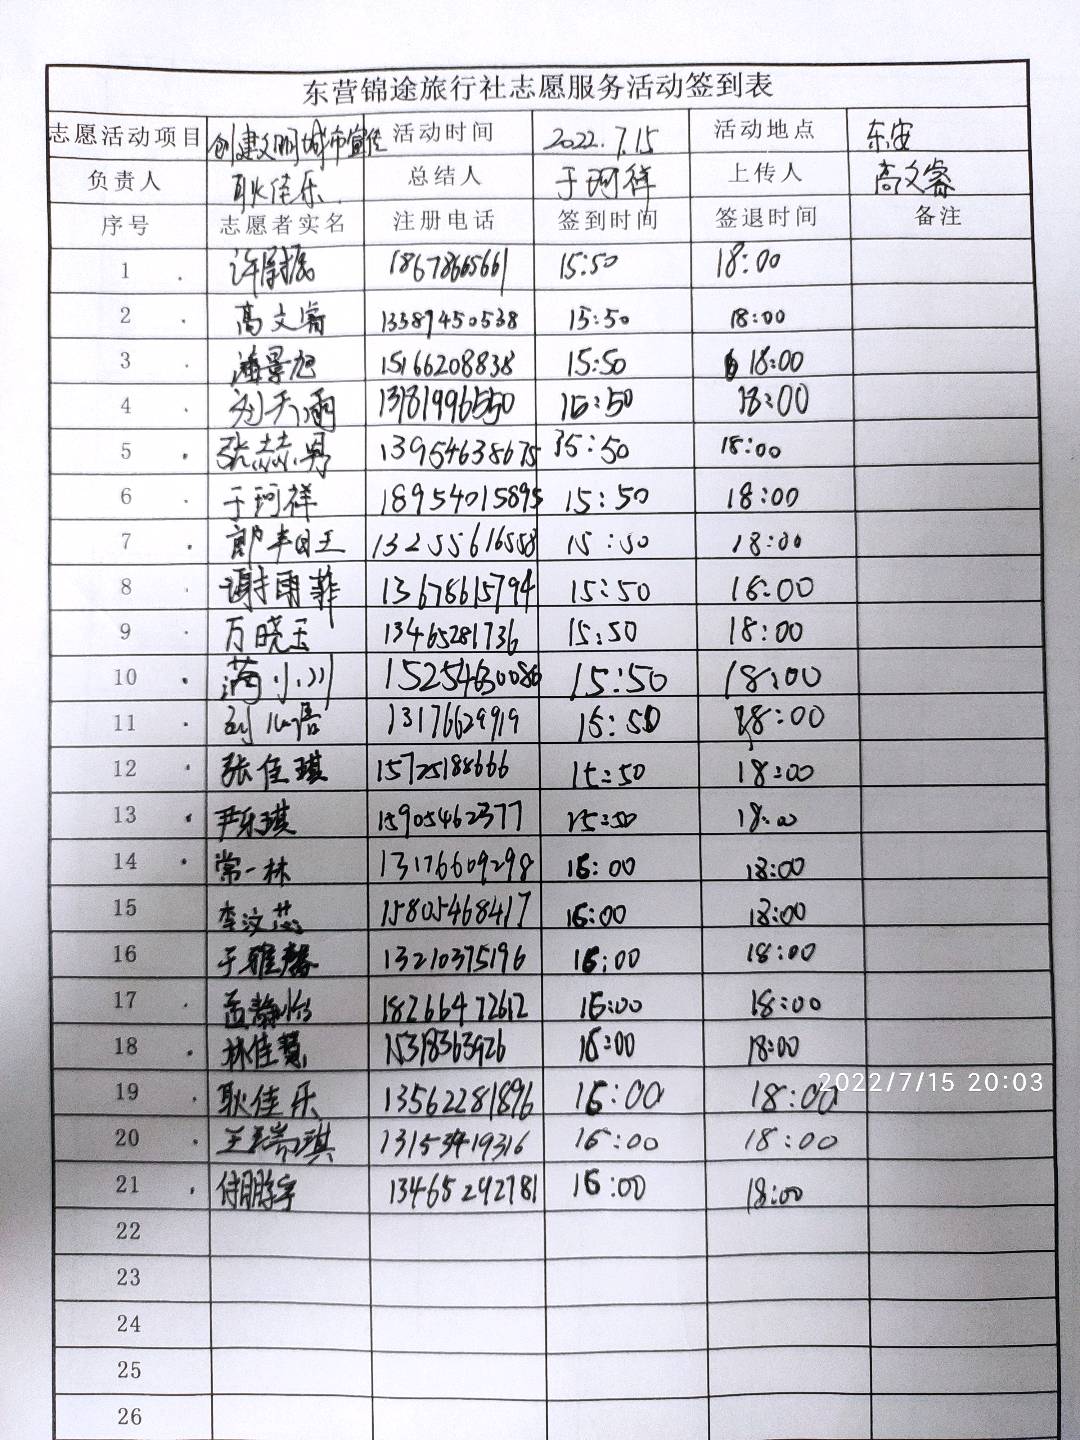 东营锦途旅行社志愿服务活动签到表
志愿活动项目 创建文明城市宣传 活动时间 2022.7.15 活动地点 东安
负责人 耿佳乐 总结人 于珂祥 上传人 高文睿
序号 志愿者实名 注册电话 签到时间 签退时间 备注
1 许尉宸 18678665661 15:50 18:00
2 高文睿 13389450538 15:50 18:00
3 潘景旭 15166208838 15:50 18:00
4 刘天雨 13181996550 15:50 18:00
5 张喆勇 13954638675 15:50 18:00
6 于珂祥 18954015895 15:50 18:00
7 13255616558 15:50 18:00
8 谢雨菲 13678615794 15:50 18:00
9 万晓玉 13465281736 15:50 18:00
10 满小川 15254630086 15:50 18:00
11 刘心语 13176629919 15:50 18:00
12 张佳琪 15725188666 15:50 18:00
13 尹乐琪 15905462377 15:50 18:00
14 常一林 13176609298 16:00 18:00
15 李汶蕊 15805468417 16:00 18:00
16 于雅馨 13210375196 16:00 18:00
17 孟静怡 18266472612 16:00 18:00
18 林佳慧 15318363926 16:00 18:00
19 耿佳乐 13562281896 16:00 18:00
2022/7/15 20:03
20 王瑞琪 13153419316 16:00 18:00
21 付鹏宇 13465292781 16:00 18:00
22
23
24
25
26